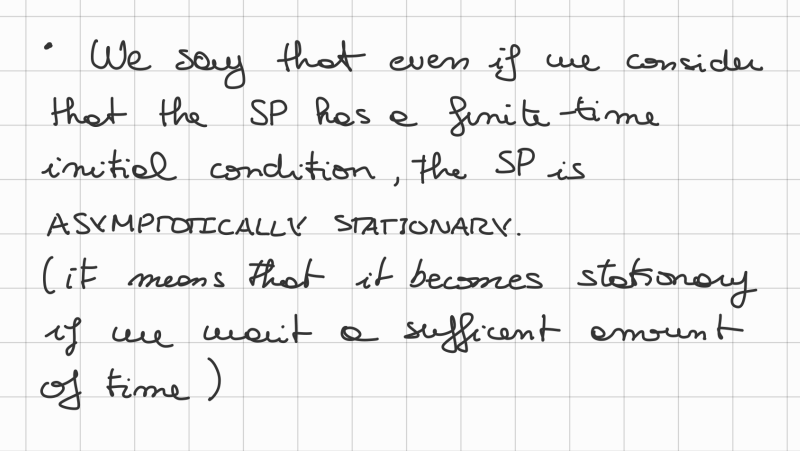 • We say that even if we consider
that the SP has a finite-time
initial condition, the SP is
ASYMPTOTICALLY STATIONARY.
(it means that it becomes stationary
if we wait a sufficent amount
of time)